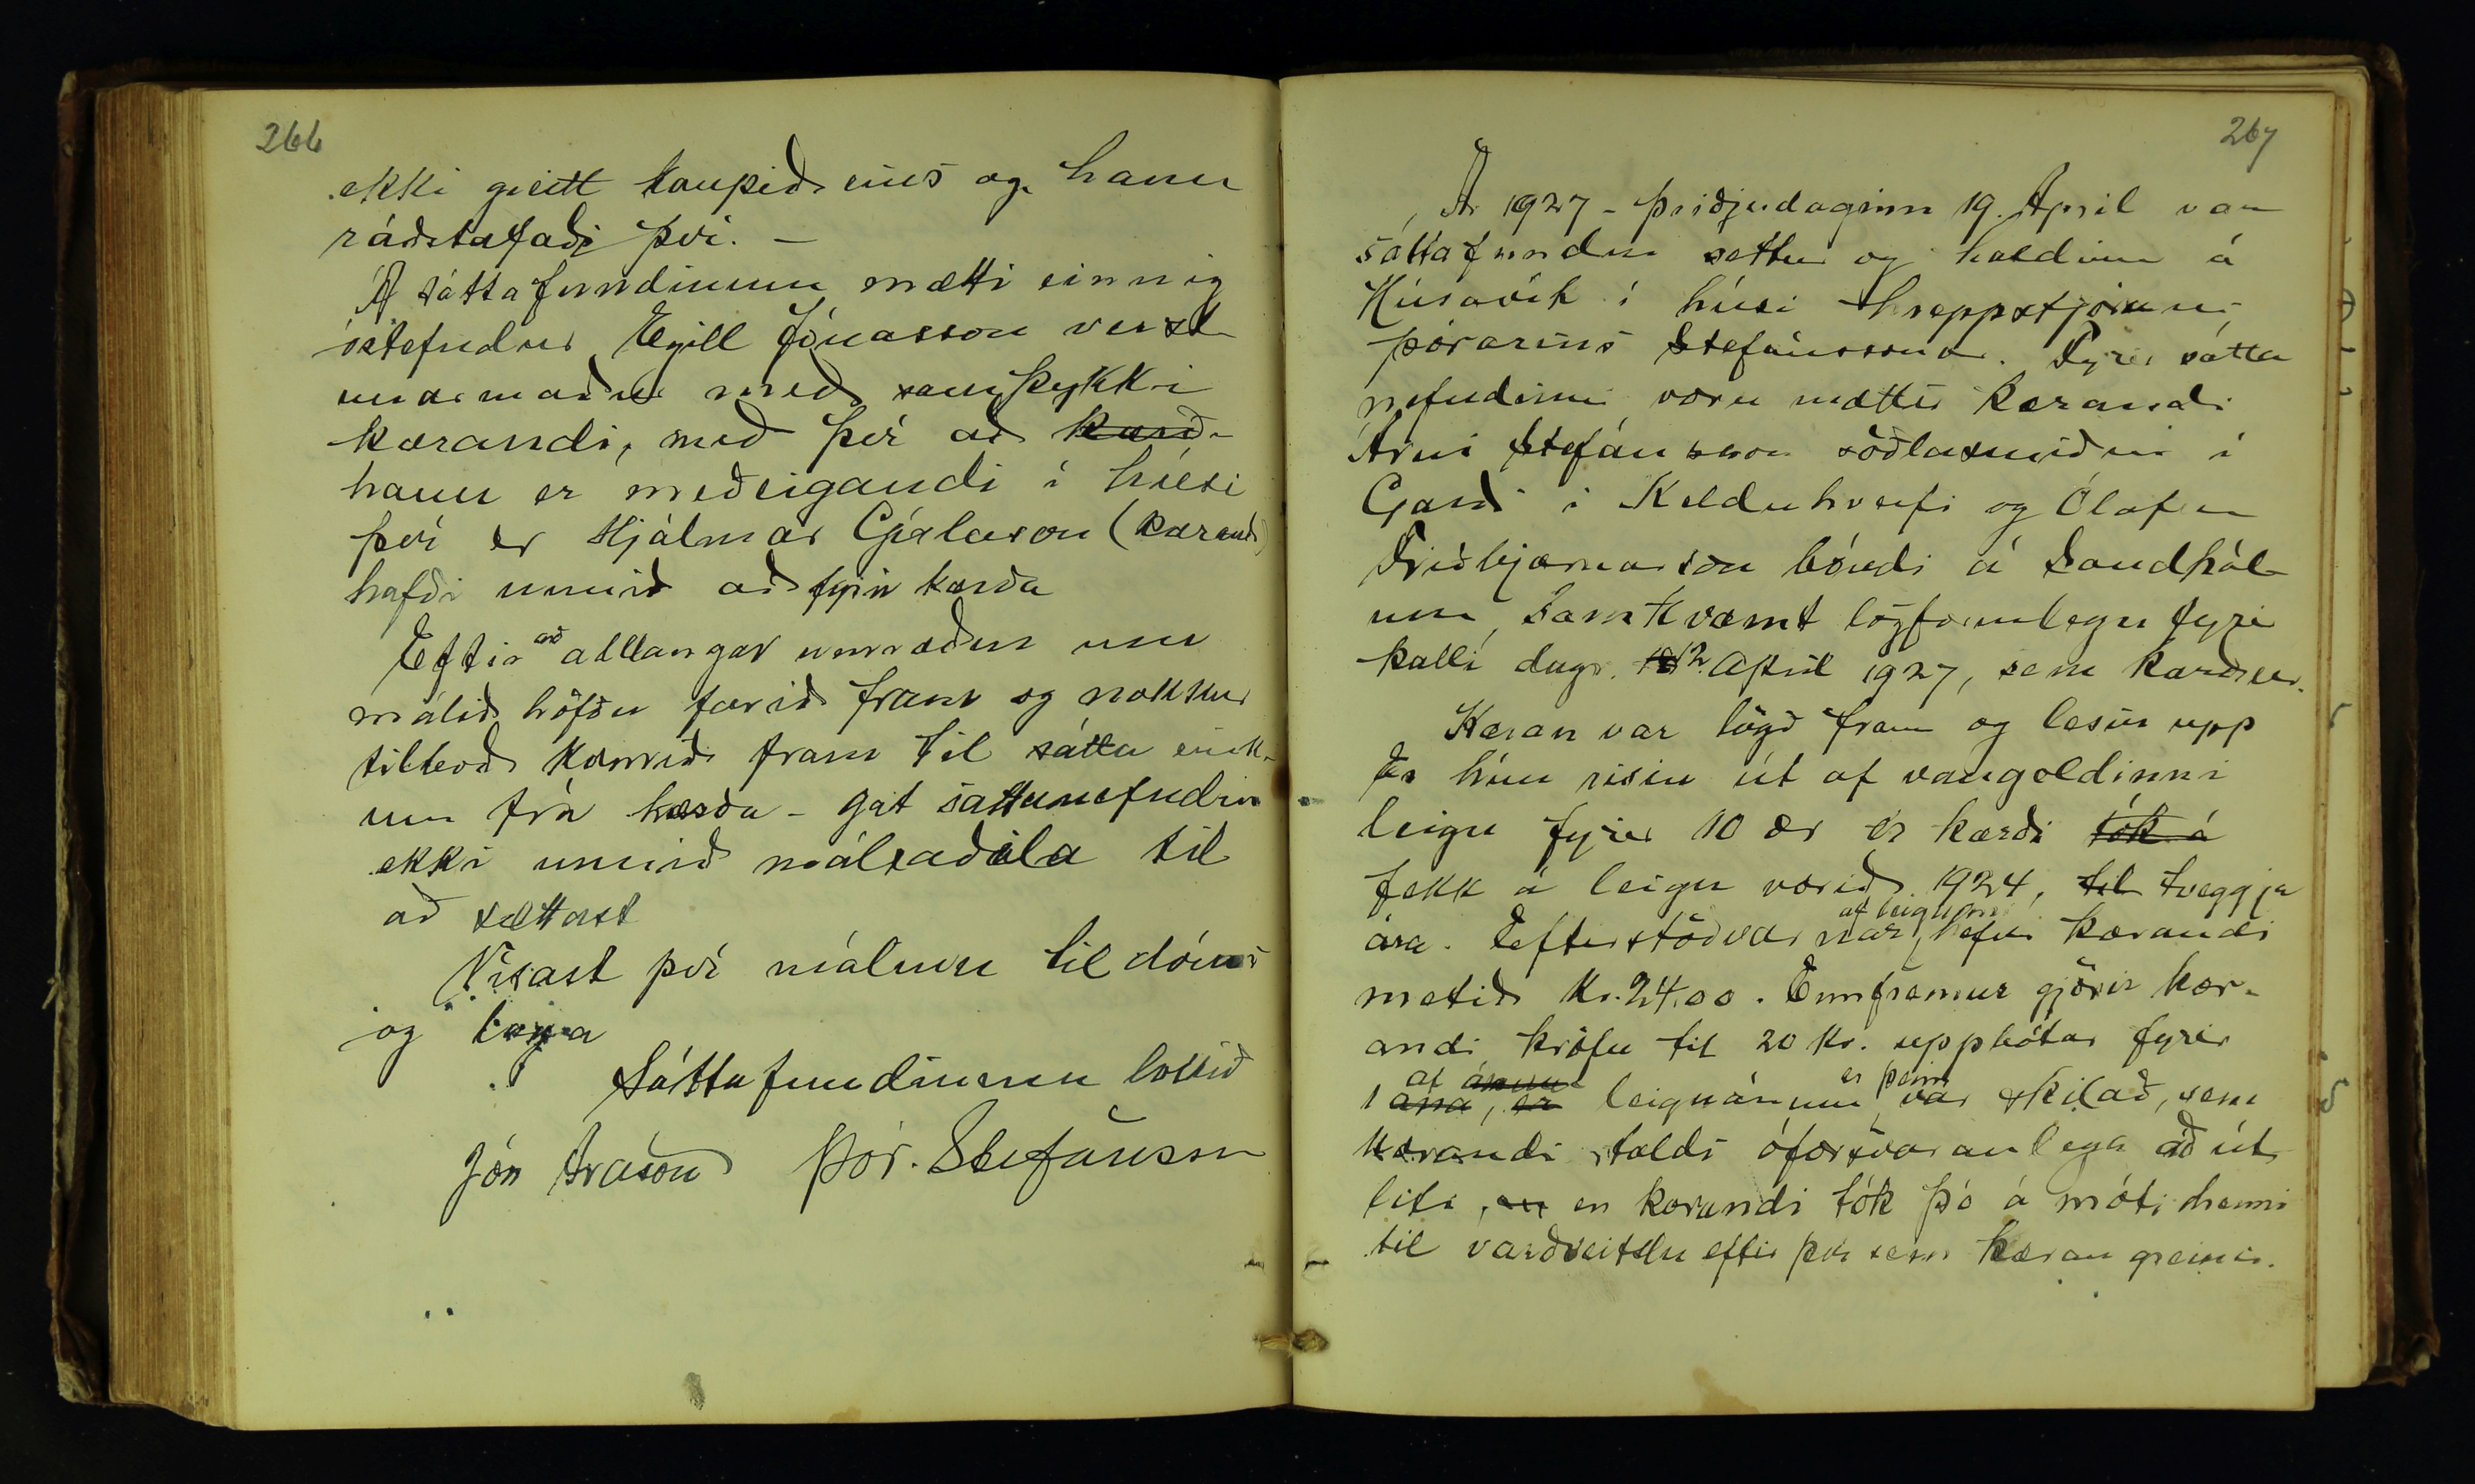 266
ekki greitt kaupið eins og hann
ráðstafaði því. —
Á sáttafundinum mætti einnig
óstefndur Egill Jónasson verzl-
unarmaður með samþykki
kærandi, með því að kærð-
hann er meðeigandi í húsi
því er Hjálmar Gíslason (kærandi)
hafði unnið að fyrir kærða
Eftir að allangar umræður um
málið höfðu farið fram og nokkur
tilboð komið fram til sátta eink-
um frá kærða - gat sáttanefndin
ekki unnið málsaðila til
að sættast
Vísast því málinu til dóms
og laga
Sáttafundinum lokið
Jón Arason Þór. Stefánsson
267
Ár 1927 - þriðjudaginn 19. Apríl var
sáttafundur settur og haldinn á
Húsavík í húsi hreppstjórans
Þórarins Stefánssonar. Fyrir sátta
nefndinni voru mættir kærandi
Árni Stefánsson söðlasmiður í
Garði í Kelduhverfi og Ólafur
Friðbjarnarson bóndi á Sandhól-
um, samkvæmt lögformlegu fyrir
kalli dags. 12. Apríl 1927, sem kærður.
Kæran var lögð fram og lesin upp
Er hún risin út af vangoldinni
leigu fyrir 10 ær er kærði tók á
fekk á leigu vorið 1924, til tveggja
af leigunni
ára. Eftirstöðvarnar, hefur kærandi
metið Kr. 24.00. Ennfremur gjörir kær-
andi kröfu til 20 kr. uppbótar fyrir
af ánum er þeim
1 ána, er leiguánum var skilað, sem
kærandi taldi óforsvaranlega að út
liti, en en kærandi tók þó á móti henni
til varðveitslu eftir því sem kæran greinir.